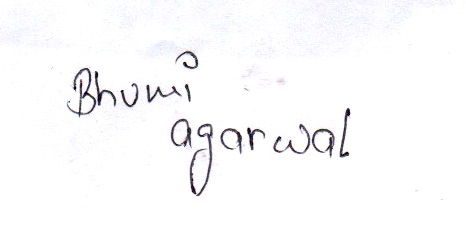 Bhumi
agarwal